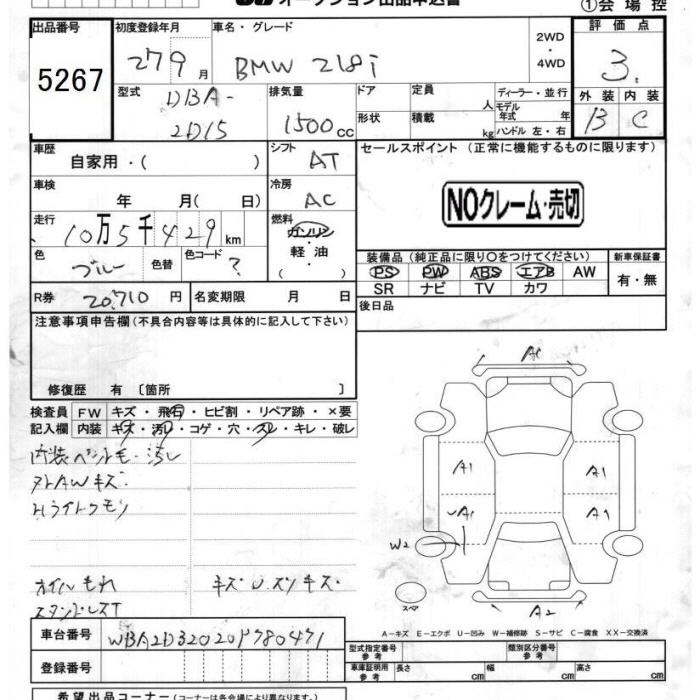 オークション出品申込書
①会場控
出品番号 初度登録年月 車名・グレード 2WD ・ 4WD 評価点
5267 27 9 月 BMW 218i 3
型式 DBA-2D15 排気量 1500 cc ドア 定員 人 ディーラー・並行 外装 内装
形状 積載 kg モデル年式 年式 ハンドル 左・右 B C
車歴 自家用・( ) シフト AT セールスポイント (正常に機能するものに限ります)
車検 年 月( 日) 冷房 AC
NOクレーム・売切
走行 10万5千429km 燃料 ガソリン・軽油・( )
色 ブルー 色替 色コード ?
装備品 (純正品に限り○をつけてください) 新車保証書
PS PW ABS エアB AW 有・無
SR ナビ TV カワ
R券 20,710 円 名変期限 月 日 後日品
注意事項申告欄 (不具合内容等は具体的に記入して下さい)
修復歴 有 [箇所 ]
検査員 FW キズ・飛石・ヒビ割・リペア跡・×要
記入欄 内装 キズ・汚れ・コゲ・穴・スレ・キレ・破レ
内装ペット毛・汚レ
ヌトAWキズ
Hライトクモリ
オイルもれ キズ U.スソキズ
スタンドレスT
A1
A1 A1
A1 A1
W2
スペア A2
A-キズ E-エクボ U-凹み W-補修跡 S-サビ C-腐食 XX-交換済
車台番号 WBA2D32020P780471
登録番号
型式指定番号 参考 類別区分番号 参考
車庫証明用 参考 長さ cm 幅 cm 高さ cm
希望出品コーナー (コーナーは各会場により異なります)